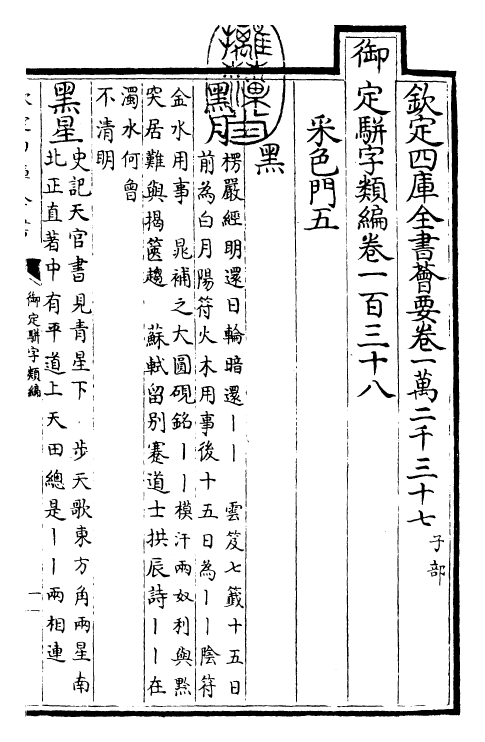 欽定四庫全書薈要卷一萬二千三十七 子部
御定駢字類編卷一百三十八
采色門五
黑
黑月 楞嚴經明還日輪暗還丨丨 雲笈七籤十五日
前為白月陽符火木用事後十五日為丨丨陰符
金水用事 晁補之大圓硯銘丨丨模汗兩奴利與黙
突居難與揭篋趨 蘇軾留别蹇道士拱辰詩丨丨在
濁水何曾
不清明
黑星 史記天官書見青星下 步天歌東方角兩星南
北正直著中有平道上天田總是丨丨兩相連
御定駢字類編
一